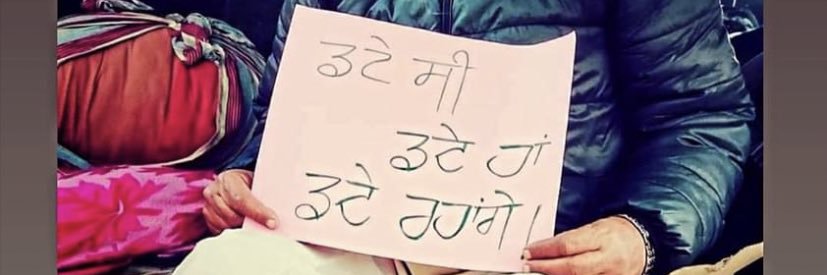 ਡਟੇ ਸੀ
ਡਟੇ ਹਾਂ
ਡਟੇ ਰਹਾਂਗੇ।